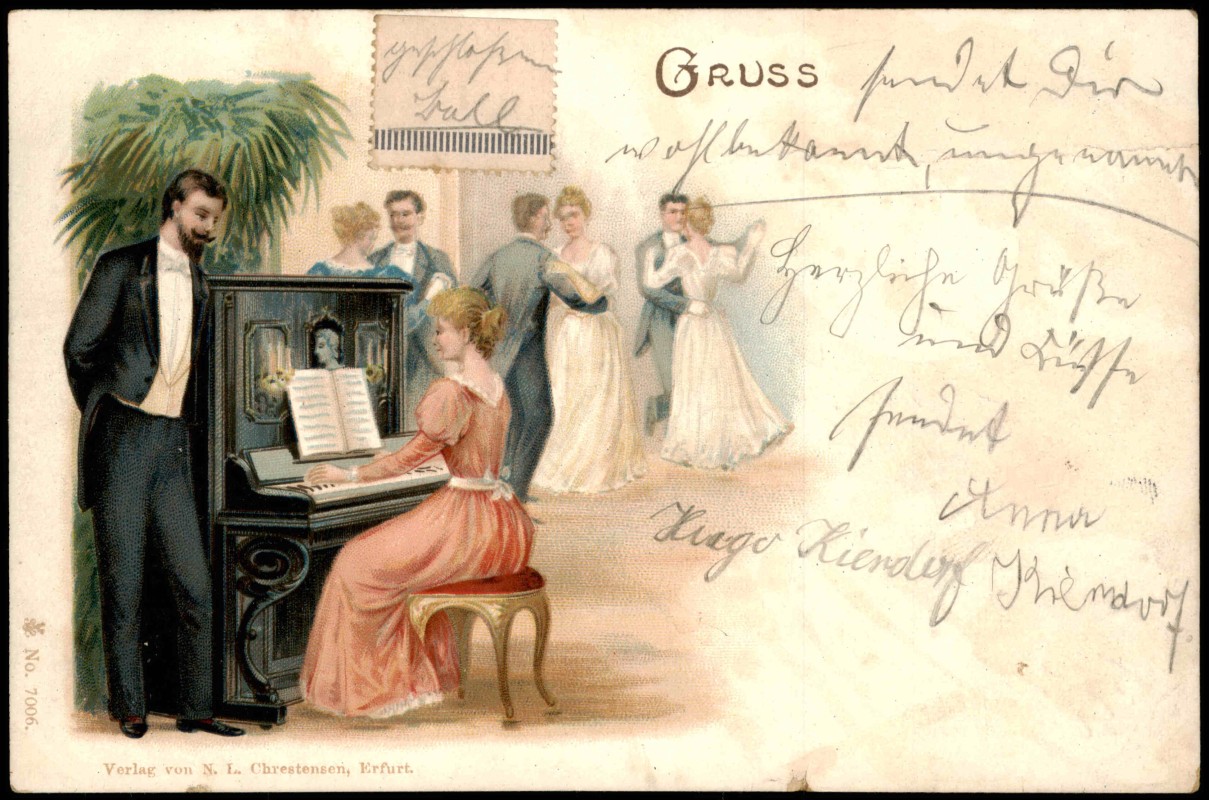 geschlossener
Ball
GRUSS sendet Dir
wohlbekannt, ungenannt
Herzliche Grüße
und Küsse
sendet
Anna
Hugo Kierdorf Kierdorf.
No. 7006.
Verlag von N. L. Chrestensen, Erfurt.